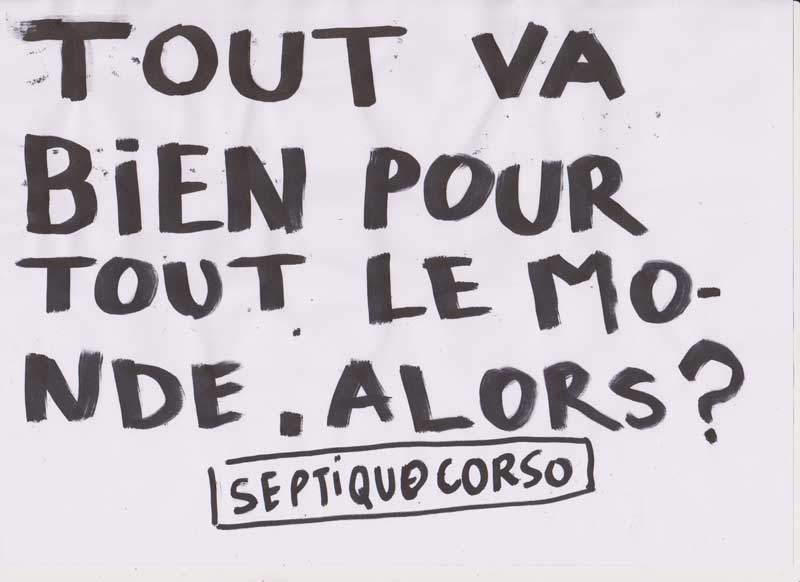 TOUT VA
BiEN POUR
TOUT LE MO-
NDE. ALORS?
SEPTiQUE CORSO